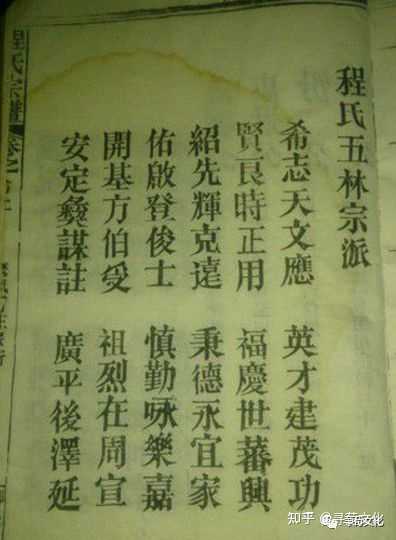 程氏五林宗派
希志天文應 英才建茂功
賢良時正用 福慶世蕃興
紹先輝克達 秉德永宜家
佑啟登俊士 慎勤咏樂嘉
開基方伯受 祖烈在周宣
安定彝謀註 廣平後澤延
程氏宗譜
知乎 @寻荀文化